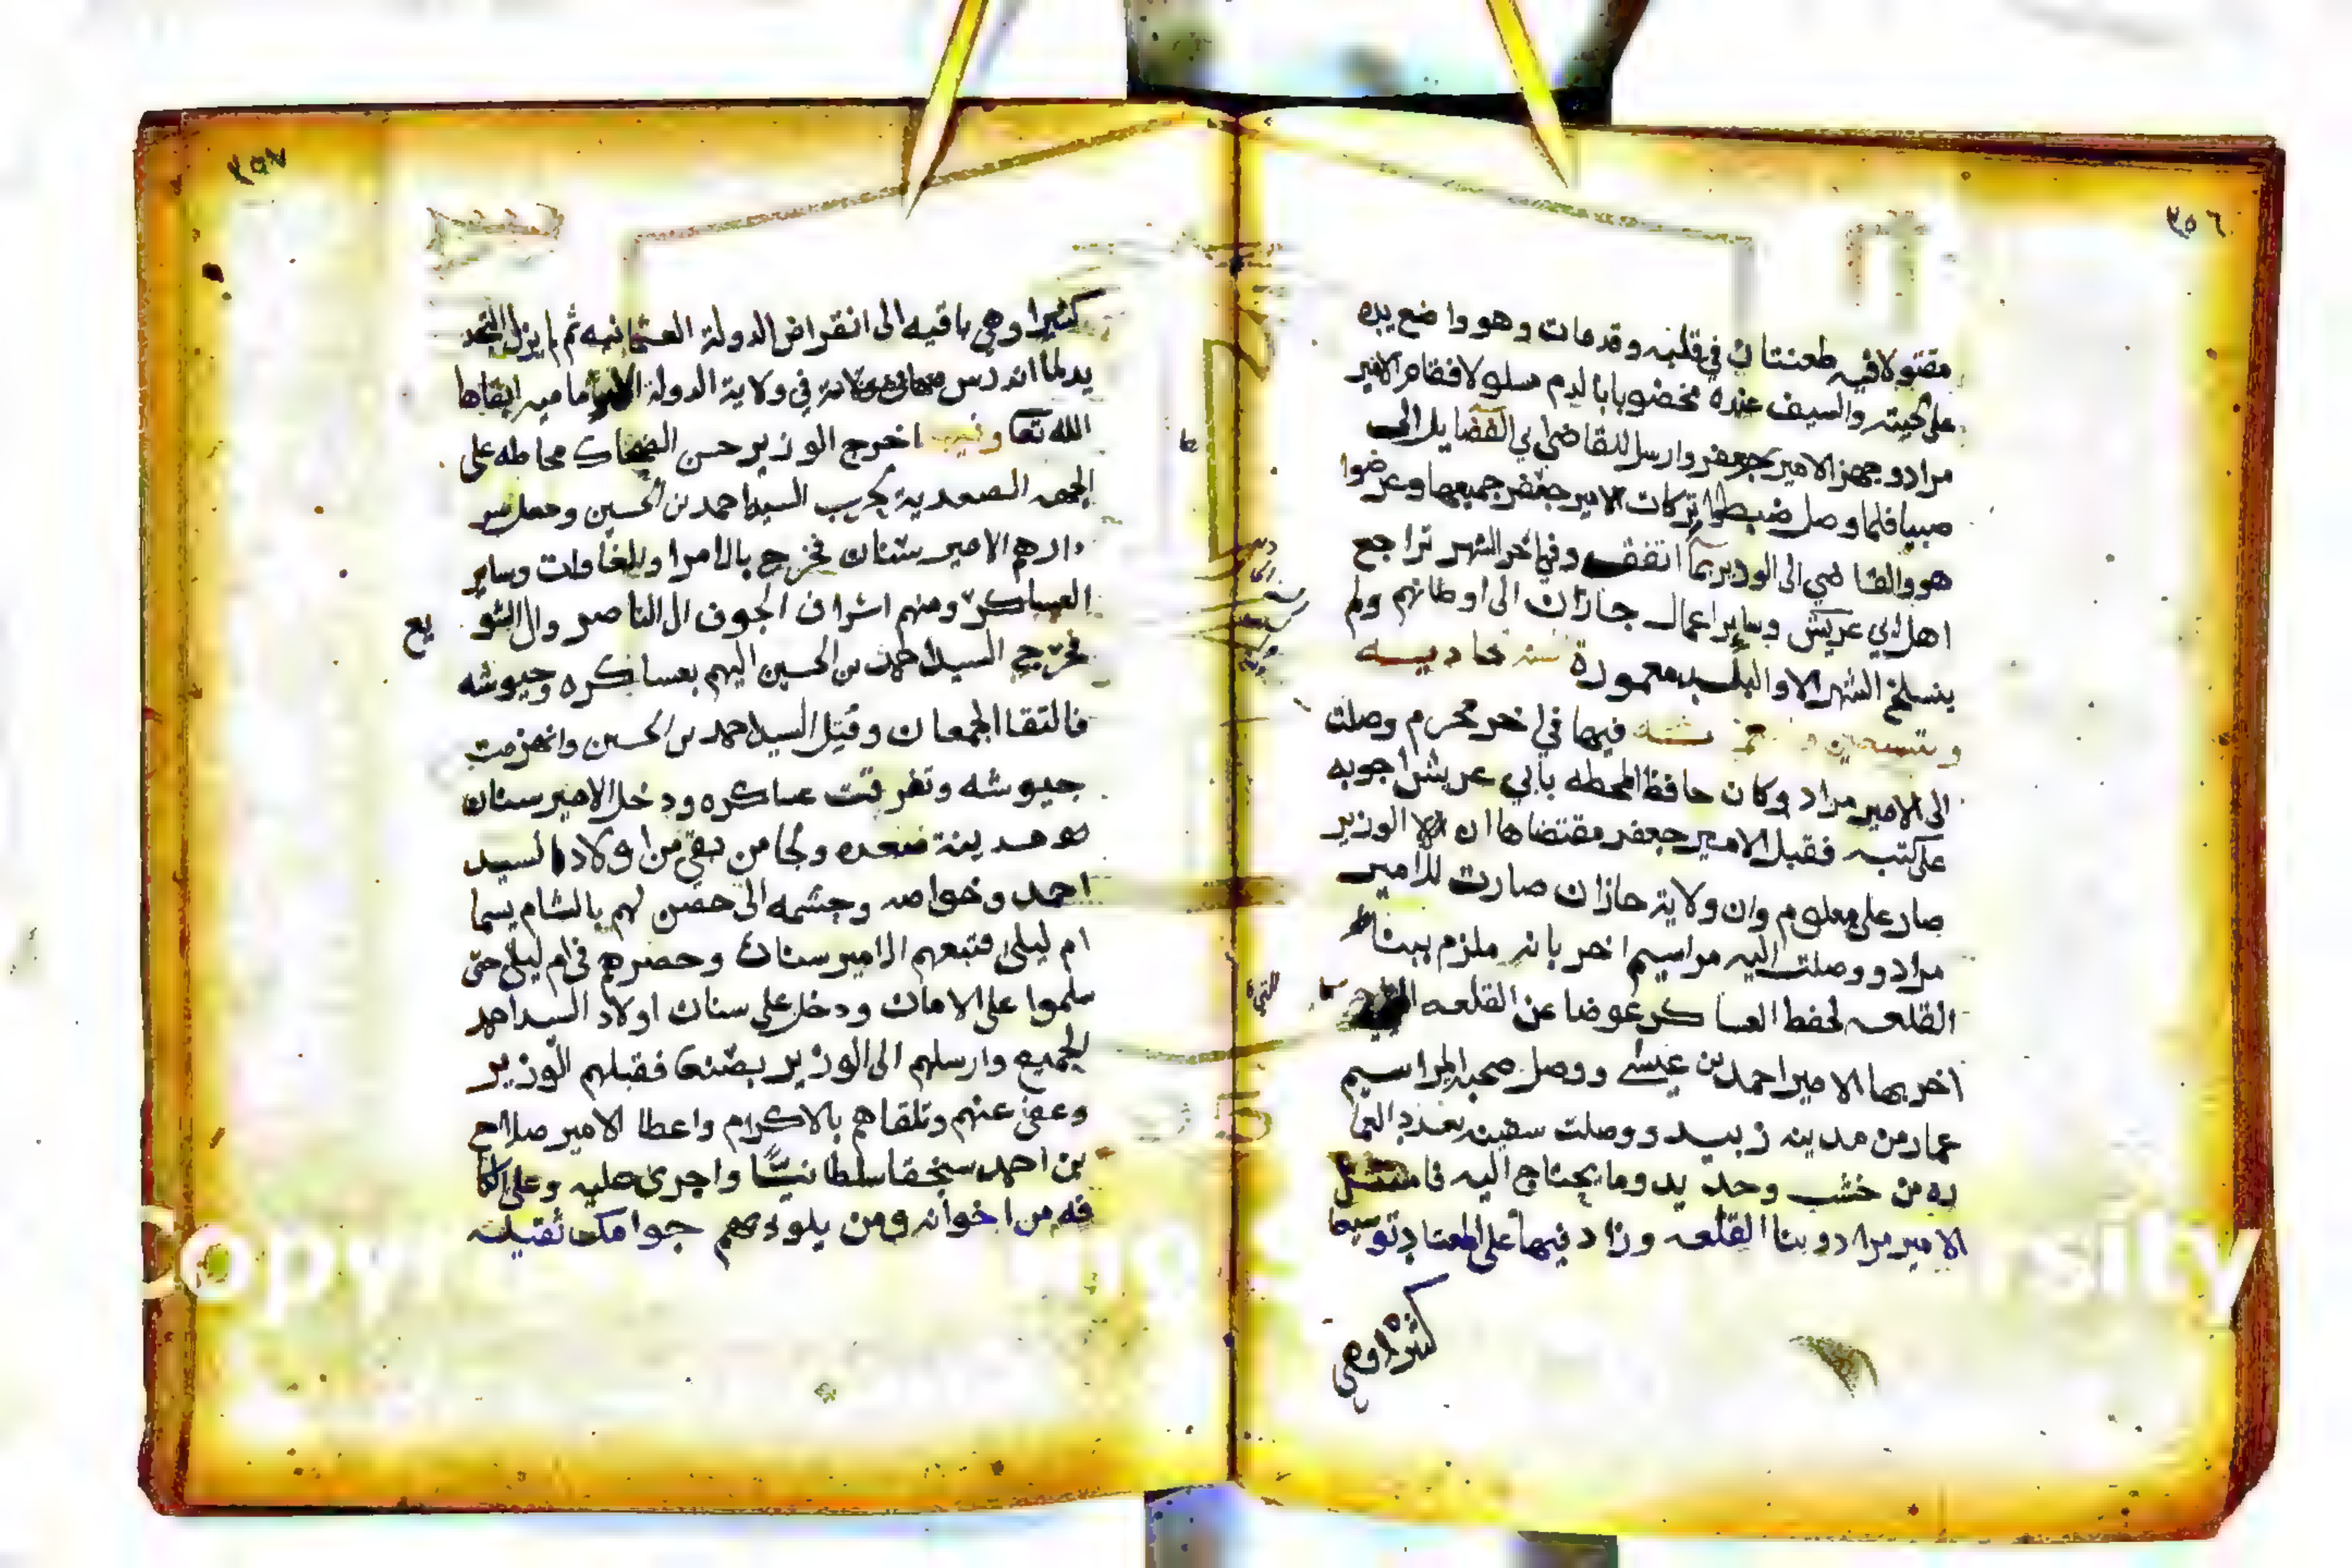 ٣٥٦
مقتولا فيه طعنتان في قلبه وقد مات وهو واضع يده
على لحيته والسيف عنده مخضوبا بالدم مسلولا فقام الامير
مراد وجهز الامير جعفر وارسل للقاضي ابي الفضايل الى
صبيا فلما وصل ضبطوا تركات الامير جعفر جميعها وعرضوا
هو والقاضي الى الوزير بما اتفق وفي اخر الشهر تراجع
اهل ابي عريش وساير اعمال جازان الى اوطانهم ولم
ينسلخ الشهر الا والبلد معمورة سنة حاديه
وتسعين فيها في اخر محرم وصلت
الى الامير مراد وكان حافظ المحطه بابي عريش اجوبه
على كتبه فقبل الامير جعفر مقتضاها ان الوزير
صار على معلوم وان ولاية جازان صارت للامير
مراد ووصلت اليه مراسيم اخر بانه ملزم ببنا
القلعه لحفظ العساكر عوضا عن القلعه التي
اخربها الامير احمد بن عيسى ووصل صحبة المراسيم
عمار من مدينه زبيد ووصلت سفينه بعدد العما
ره من خشب وحديد وما يحتاج اليه فامتثل
الامير مراد وبنا القلعه وزاد فيها على المعتاد توسيعا
كثيرا وهي
٣٥٧
كثيرا وهي باقيه الى انقراض الدولة العثمانيه ثم لم يزل التجد
يد لما اندرس في ولاية الدولة الاماميه ابقاها
الله تعا وفيها اخرج الوزير حسن الضحاك محاطه على
الجهه الصعدية لحرب السيد احمد بن الحسين وجعل سر
دارهم الامير سنان فخرج بالامرا والمغاولت وساير
العساكر ومنهم اشراف الجوف ال الناصر وال الشو يع
فخرج السيد احمد بن الحسين اليهم بعساكره وجيوشه
فالتقا الجمعان وقتل السيد احمد بن الحسين وانهزمت
جيوشه وتفرقت عساكره ودخل الامير سنان
مدينة صعده ولجا من بقي من اولاد السيد
احمد وخواصه وحشمه الى حصن لهم بالشام يسما
ام ليلى فتبعهم الامير سنان وحصرهم في ام ليلى حتى
سلموا على الامان ودخل على سنان اولاد السيد احمد
الجميع وارسلهم الى الوزير بصنعا فقبلهم الوزير
وعفى عنهم وتلقاهم بالاكرام واعطا الامير صلاح
بن احمد سنجقا سلطانيًا واجرى عليه وعلى الكا
فه من اخوانه ومن يلوذ بهم جوامك ثقيله